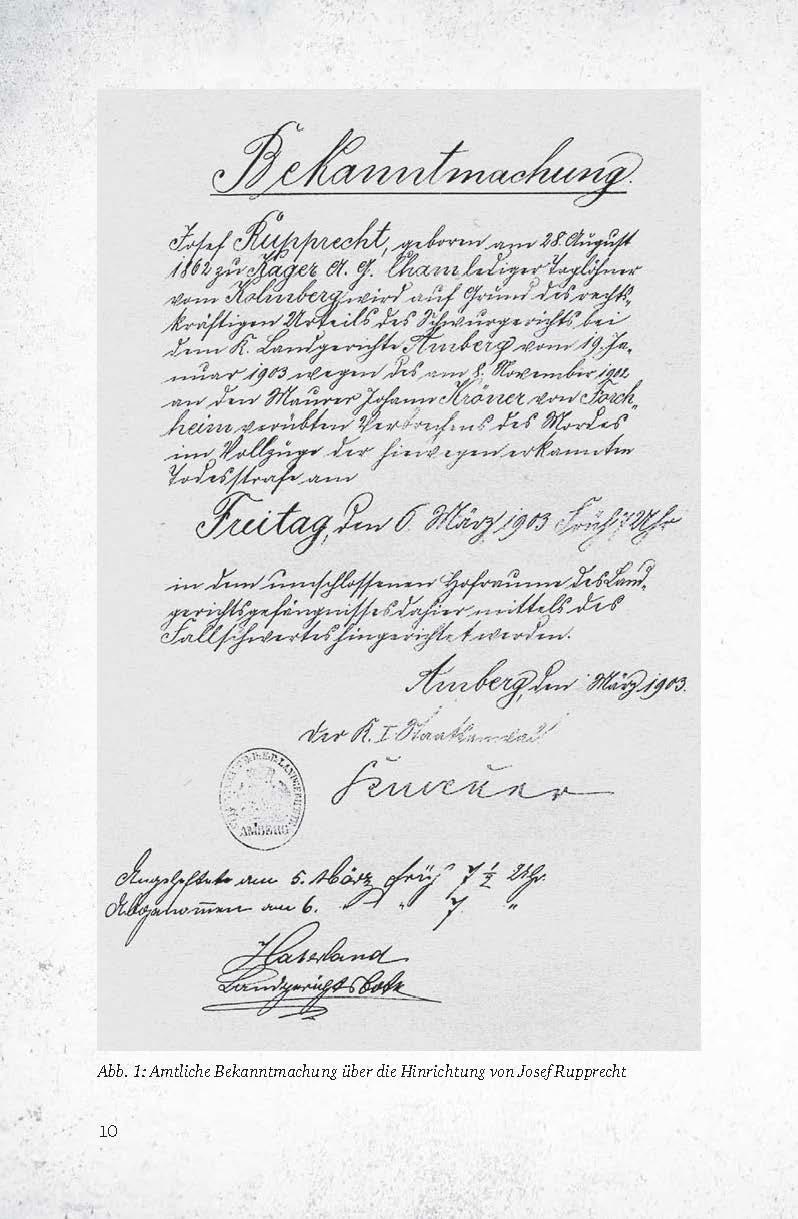 Bekanntmachung.
Josef Rupprecht, geboren am 28. August
1862 zu Kager A. G. Cham lediger Taglöhner
vom Kolmberg wird auf Grund des rechts-
kräftigen Urteils des Schwurgerichts bei
dem K. Landgerichte Amberg vom 19. Ja-
nuar 1903 wegen des am 8. November 1902
an den Maurer Johann Krämer von Forch-
heim verübten Verbrechens des Mordes
im Vollzuge der hiewegen erkannten
Todesstrafe am
Freitag, den 6. März 1903 Früh 7 Uhr
in dem umschlossenen Hofraume des Land-
gerichtsgefängnisses dahier mittels des
Fallschwertes hingerichtet werden.
Amberg, den März 1903.
Der K. I Staatsanwalt
AMBERG
Angeheftet am 5. März früh 7 1/2 Uhr.
Abgenommen am 6. " " 7 "
Haberland
Landgerichtsbote
Abb. 1: Amtliche Bekanntmachung über die Hinrichtung von Josef Rupprecht
10